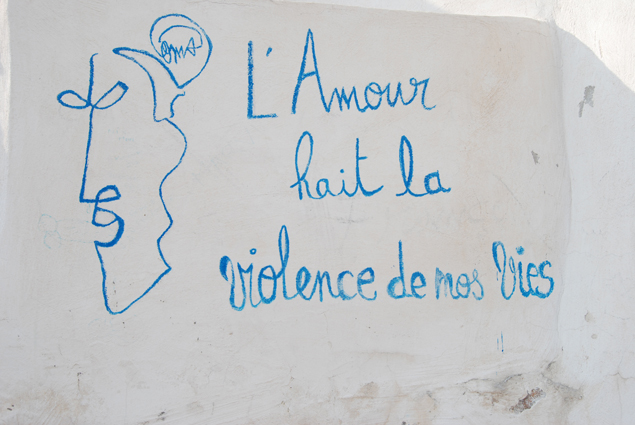 L'Amour
hait la
violence de nos Vies